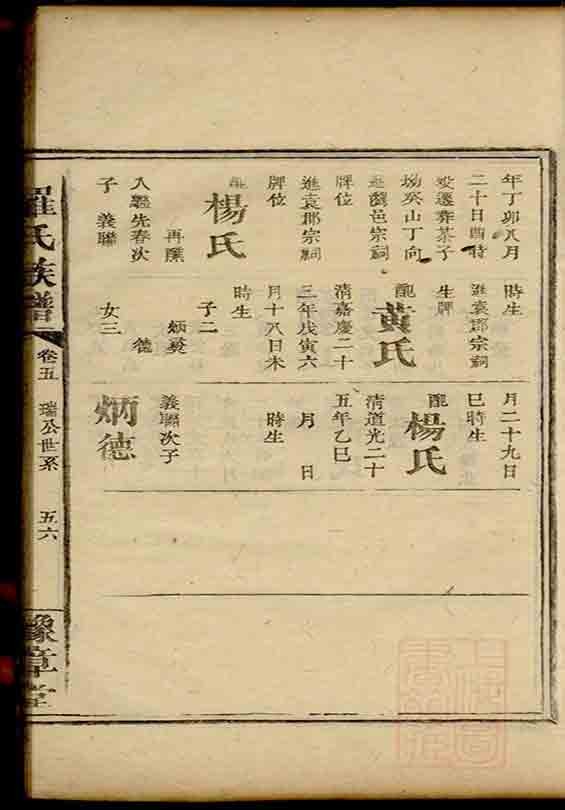 年丁卯八月
二十日酉時
歿遷葬茶子
坳癸山丁向
進劉邑宗祠
牌位
進袁郡宗祠
牌位
配楊氏
再醮
入繼先春次
子義聯
時生
進袁郡宗祠
生牌
配黃氏
清嘉慶二十
三年戊寅六
月十八日未
時生
子二
炳
德
女三
月二十九日
巳時生
配楊氏
清道光二十
五年乙巳
月日
時生
義聯次子
炳德
羅氏族譜
卷五
瑞公世系
五六
豫章堂